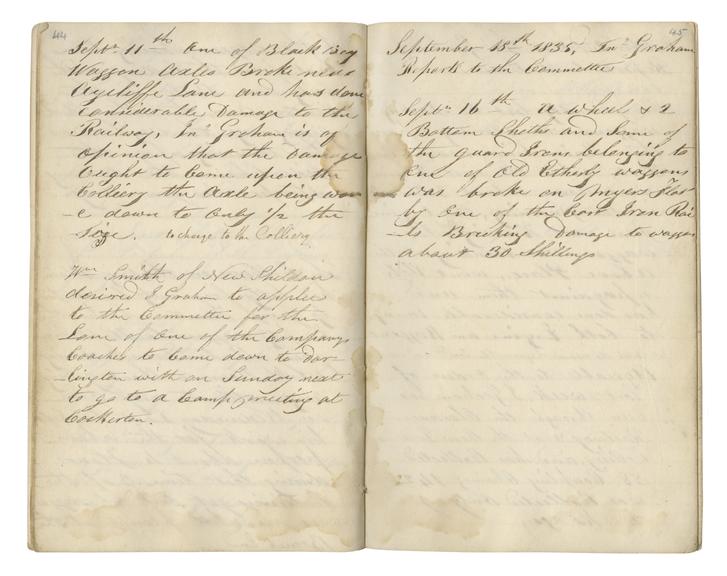 44
Septr 11th One of Black Boy
Waggon Axles Broke near
Aycliffe Lane and has done
Considerable Damage to the
Railway, Jno Graham is of
opinion that the Damage
Ought to Come upon the
Colliery the Axle being wor
-e down to Only 1/2 the
Size. to charge to the Colliery
Wm Smith of New Shildon
desired J Graham to applie
to the Committee for the
Loan of One of the Companys
Coaches to Come down to Dar
-lington with on Sunday next
to go to a Camp meeting at
Cockerton.
45
September 18th 1835, Jno Graham
Reports to the Committee
Septr 16th A wheel & 2
Bottom Sheths and Some of
the guard Irons belonging to
One of Old Etherly waggons
was broke on Myers Flat
by One of the Cast Iron Rai
-ls Breeking Damage to waggon
about 30 Shillings